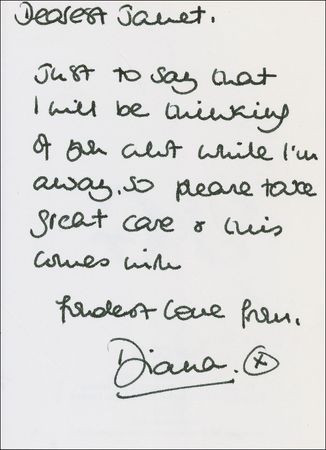 Dearest Janet.
Just to say that
I will be thinking
of you alot while I'm
away, so please take
great care & this
comes with
fondest love from,
Diana. x